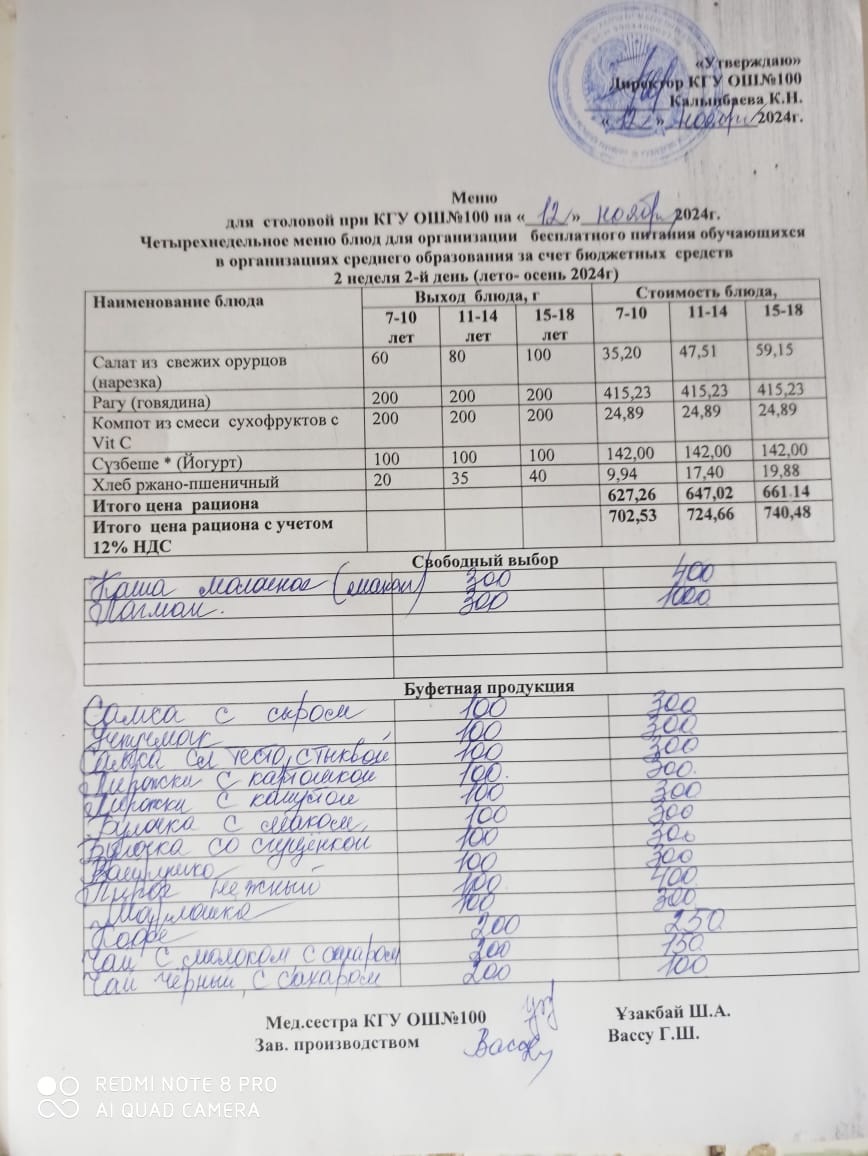 «Утверждаю»
Директор КГУ ОШ№100
Калынбаева К.Н.
« 12 » ноября 2024г.
Меню
для столовой при КГУ ОШ№100 на « 12 » ноября 2024г.
Четырехнедельное меню блюд для организации бесплатного питания обучающихся
в организациях среднего образования за счет бюджетных средств
2 неделя 2-й день (лето- осень 2024г)
Наименование блюда Выход блюда, г Стоимость блюда,
7-10 лет 11-14 лет 15-18 лет 7-10 11-14 15-18
Салат из свежих орурцов (нарезка) 60 80 100 35,20 47,51 59,15
Рагу (говядина) 200 200 200 415,23 415,23 415,23
Компот из смеси сухофруктов с Vit C 200 200 200 24,89 24,89 24,89
Сүзбеше * (Йогурт) 100 100 100 142,00 142,00 142,00
Хлеб ржано-пшеничный 20 35 40 9,94 17,40 19,88
Итого цена рациона 627,26 647,02 661.14
Итого цена рациона с учетом 12% НДС 702,53 724,66 740,48
Свободный выбор
Каша молочная 300 400
Лагман. 300 1000
Буфетная продукция
Самса с сыром 100 300
Учпучмак 100 300
Самса сл тесто, с тыквой 100 300
Пирожки с картошкой 100. 300.
Пирожки с капустой 100 300
Булочка с маком, 100 300
Булочка со сгущенкой 100 300
100 300
Пирог нежный 100 400
100 300
Кофе 200 250
Чай с молоком с сахаром 200 150
Чай чёрный, с сахаром 200 100
Мед.сестра КГУ ОШ№100 Ұзакбай Ш.А.
Зав. производством Вассу Г.Ш.
REDMI NOTE 8 PRO
AI QUAD CAMERA